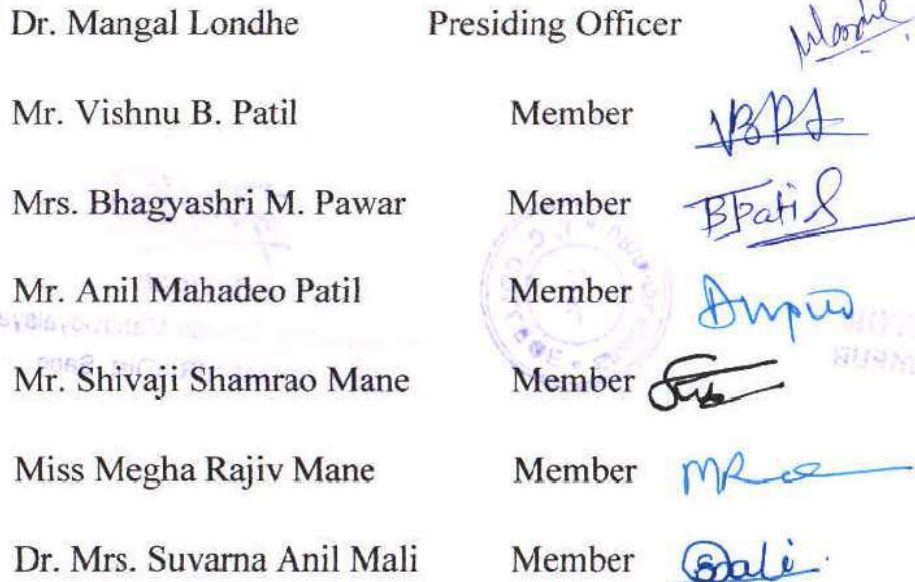 Dr. Mangal Londhe Presiding Officer
Mr. Vishnu B. Patil Member
Mrs. Bhagyashri M. Pawar Member BPatil
Mr. Anil Mahadeo Patil Member
Mr. Shivaji Shamrao Mane Member
Miss Megha Rajiv Mane Member
Dr. Mrs. Suvarna Anil Mali Member